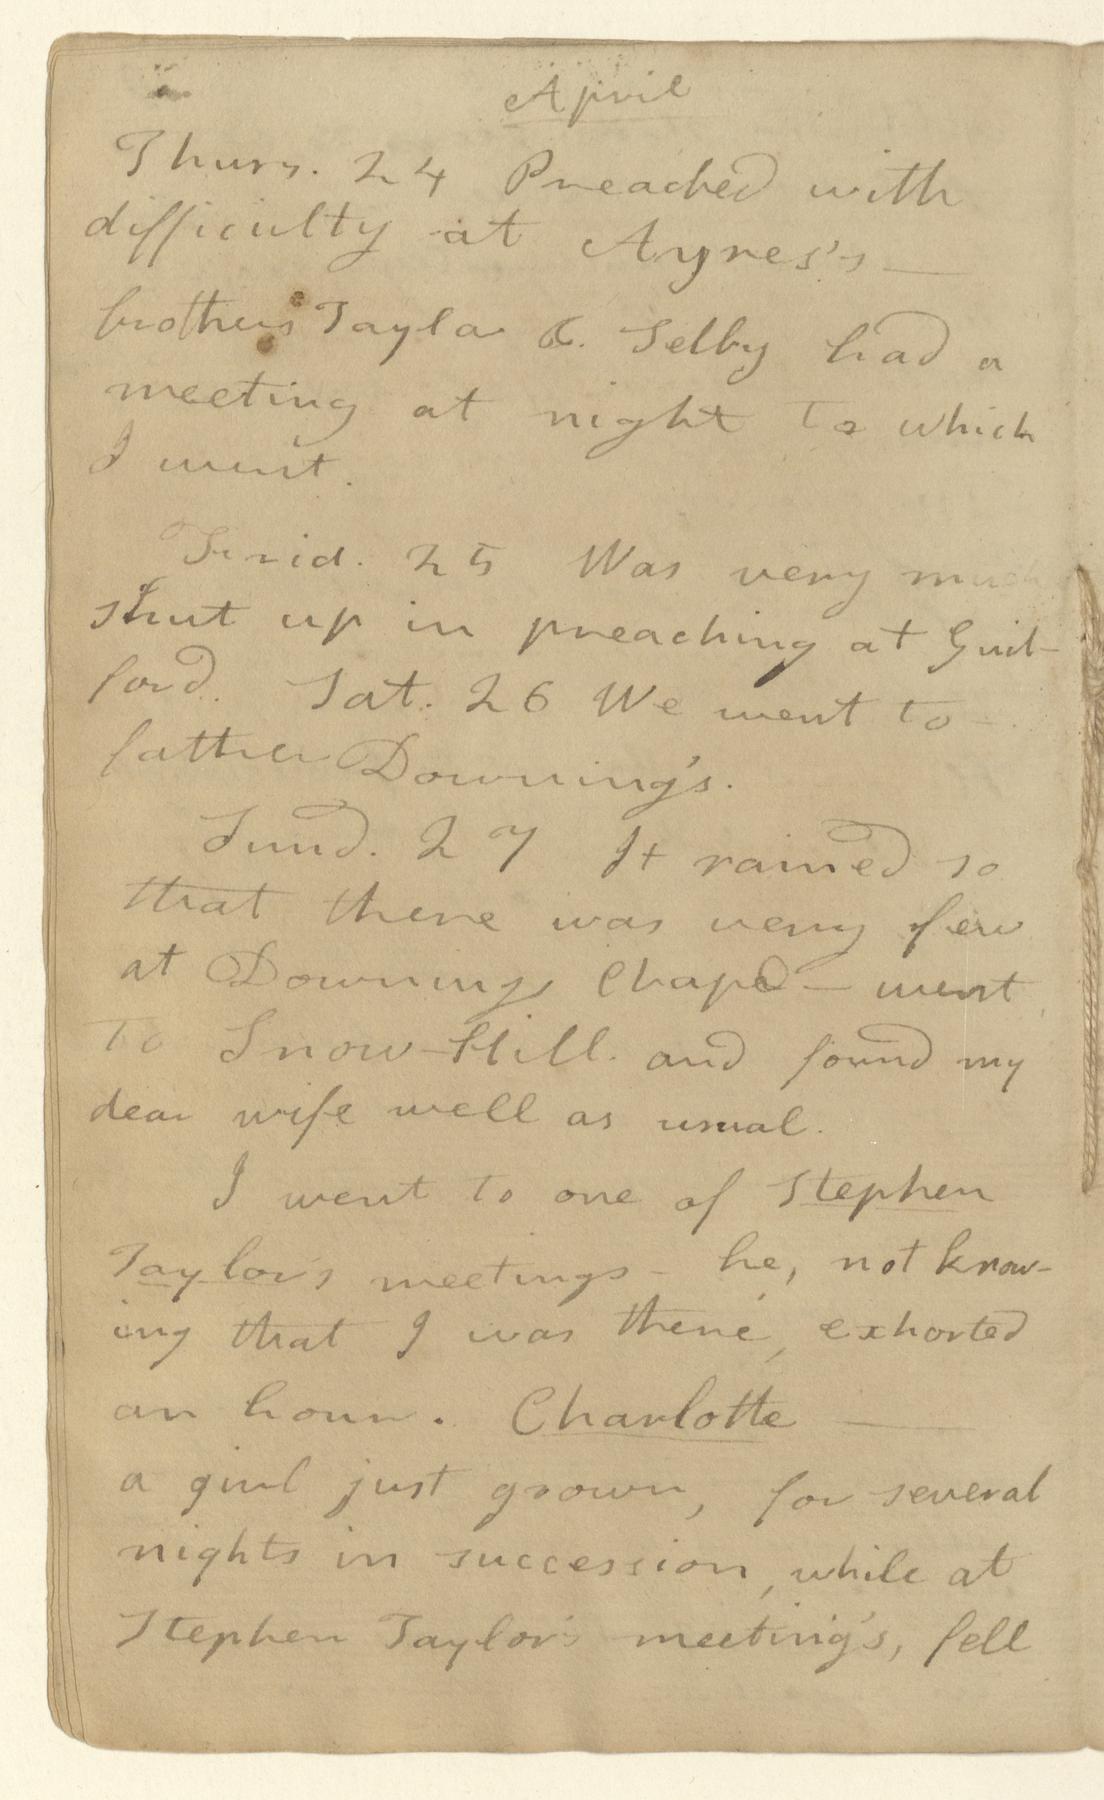 April
Thurs. 24 Preached with
difficulty at Ayres's —
brothers Taylor & Selby had a
meeting at night to which
I went.
Frid. 25 Was very much
shut up in preaching at Guil-
ford. Sat. 26 We went to
father Downing's.
Sund. 27 It rained so
that there was very few
at Downings Chapel — went
to Snow-Hill. and found my
dear wife well as usual.
I went to one of Stephen
Taylor's meetings - he, not know-
ing that I was there, exhorted
an hour. Charlotte —
a girl just grown, for several
nights in succession, while at
Stephen Taylor's meeting's, fell